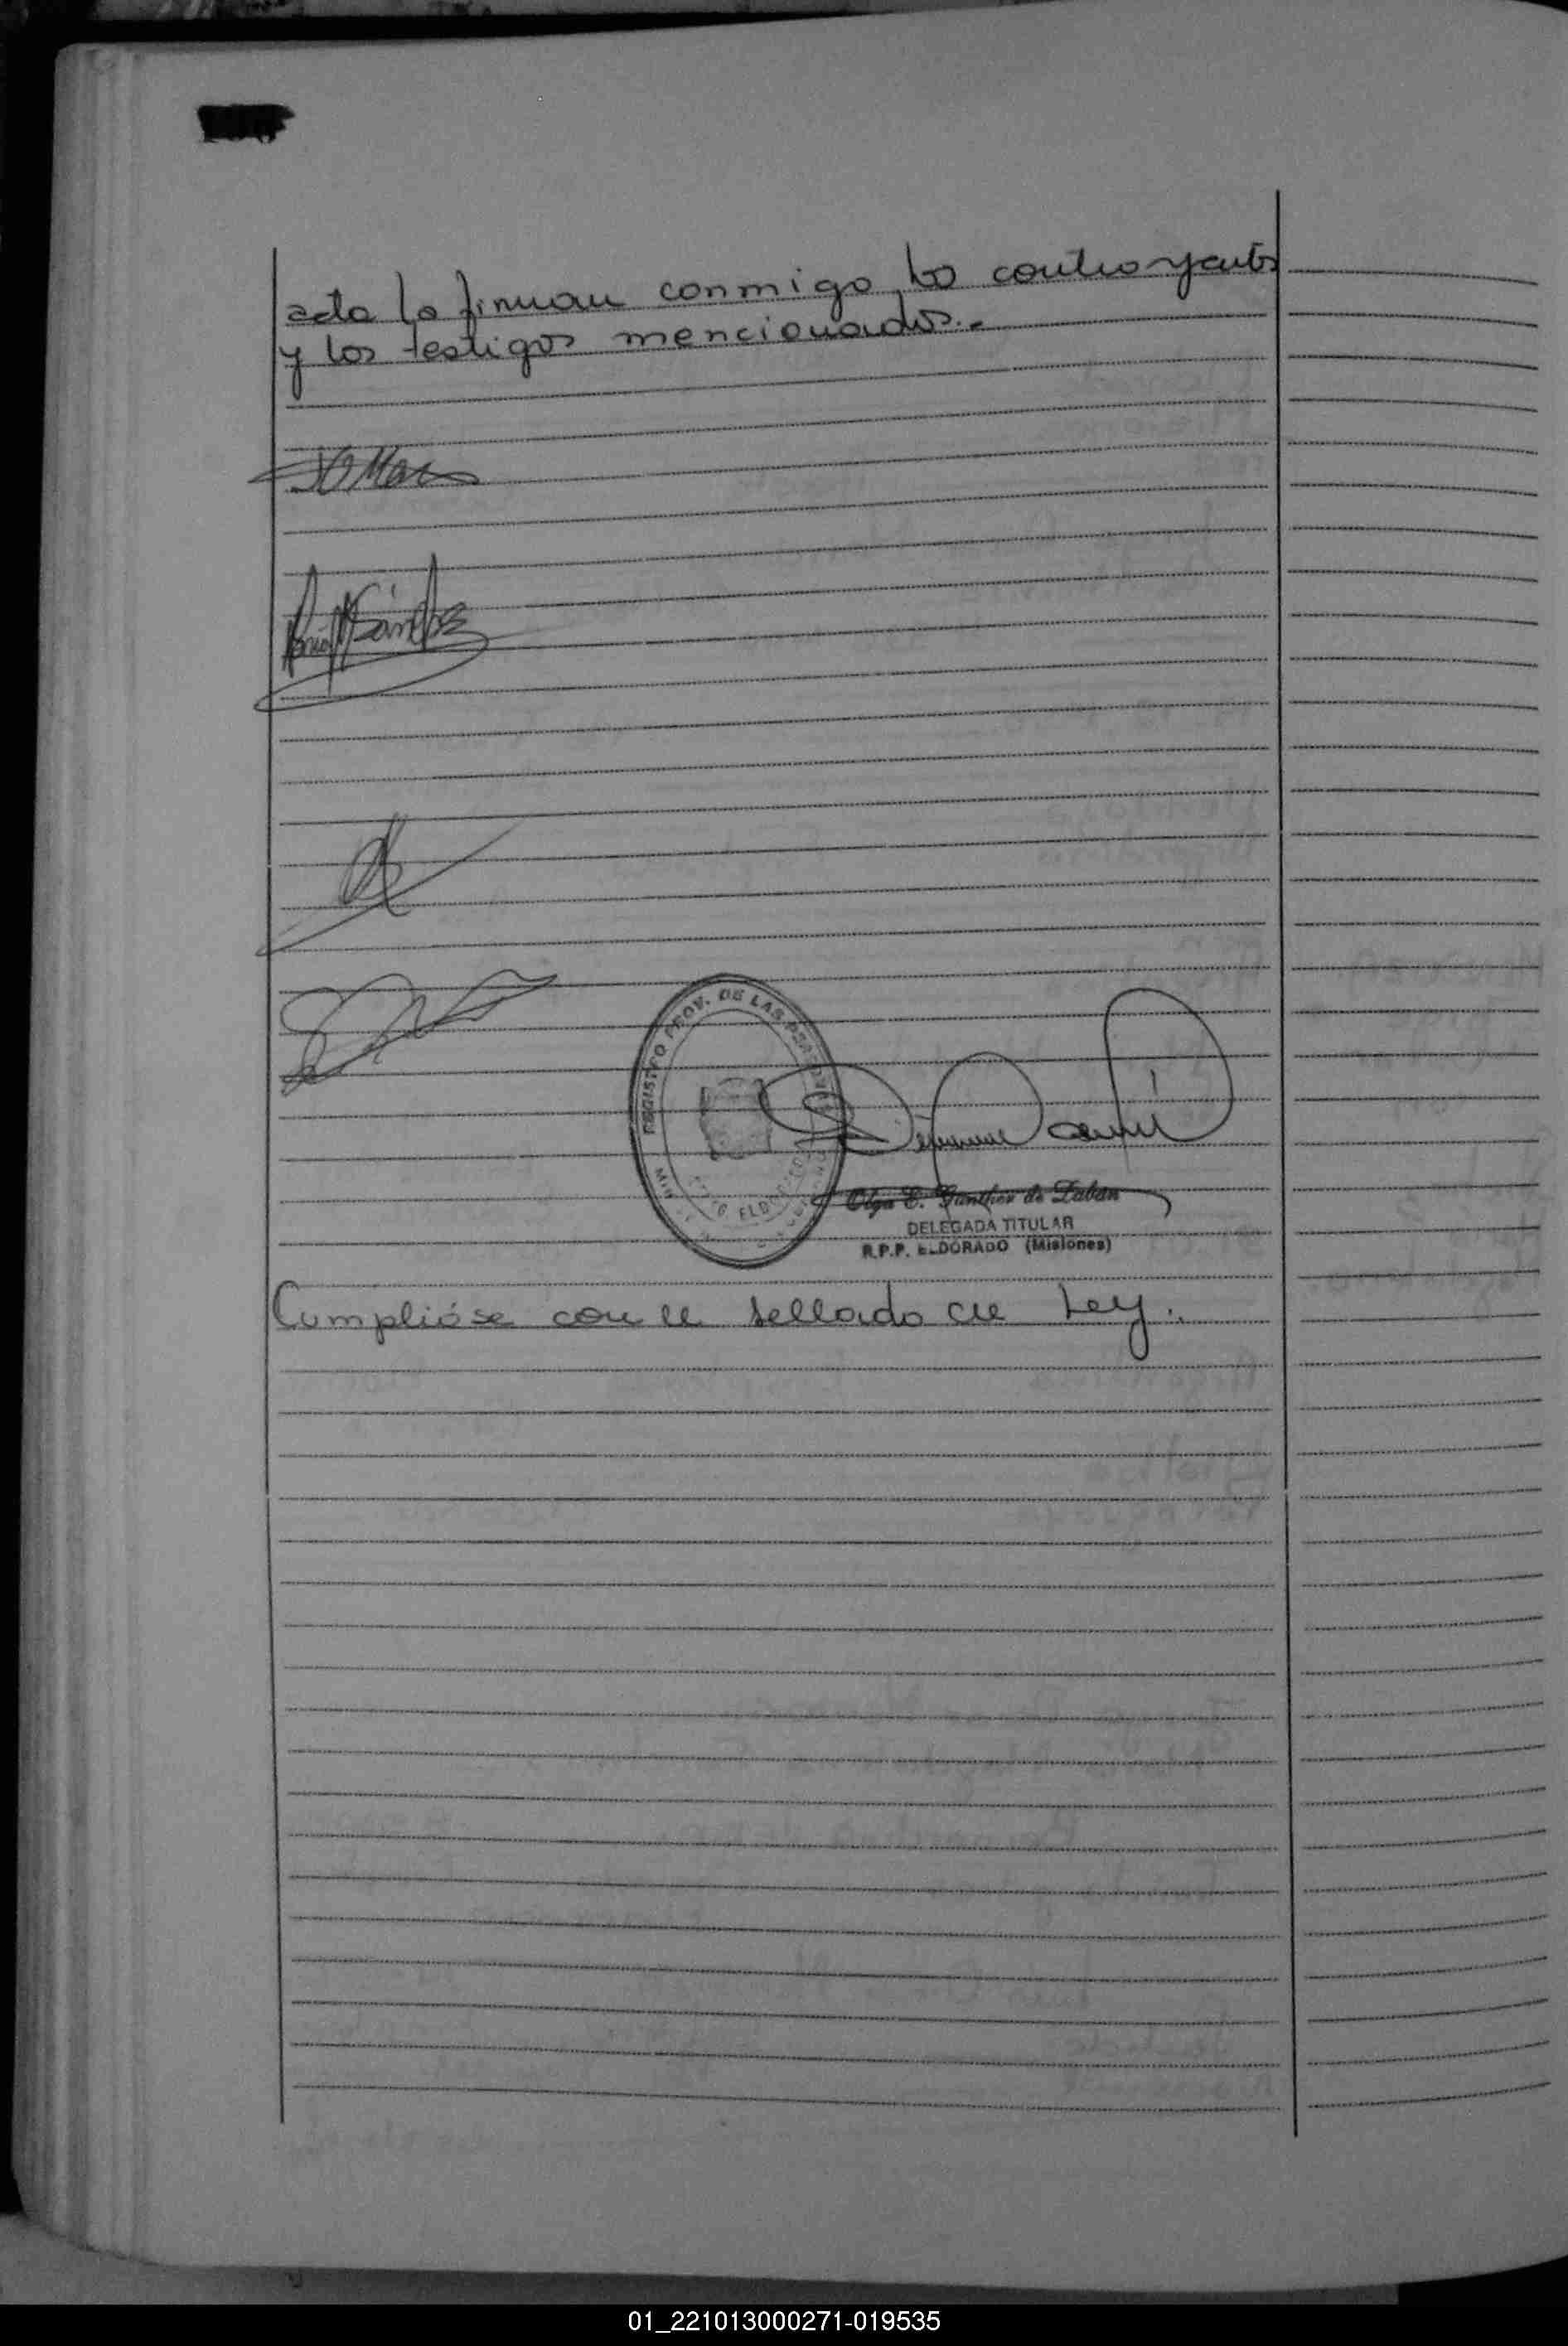 acta la firman conmigo, los contrayentes
y los testigos mencionados.-
Sánchez
REGISTRO PROV. DE LAS PERSONAS
ELDORADO
Olga E. Günther de Laban
DELEGADA TITULAR
R.P.P. ELDORADO (Misiones)
Cumplióse con el sellado de Ley.
01_221013000271-019535